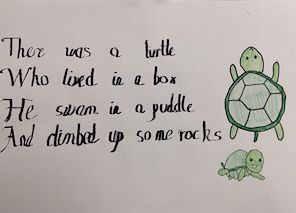 There was a turtle
Who lived in a box
He swam in a puddle
And climbed up some rocks